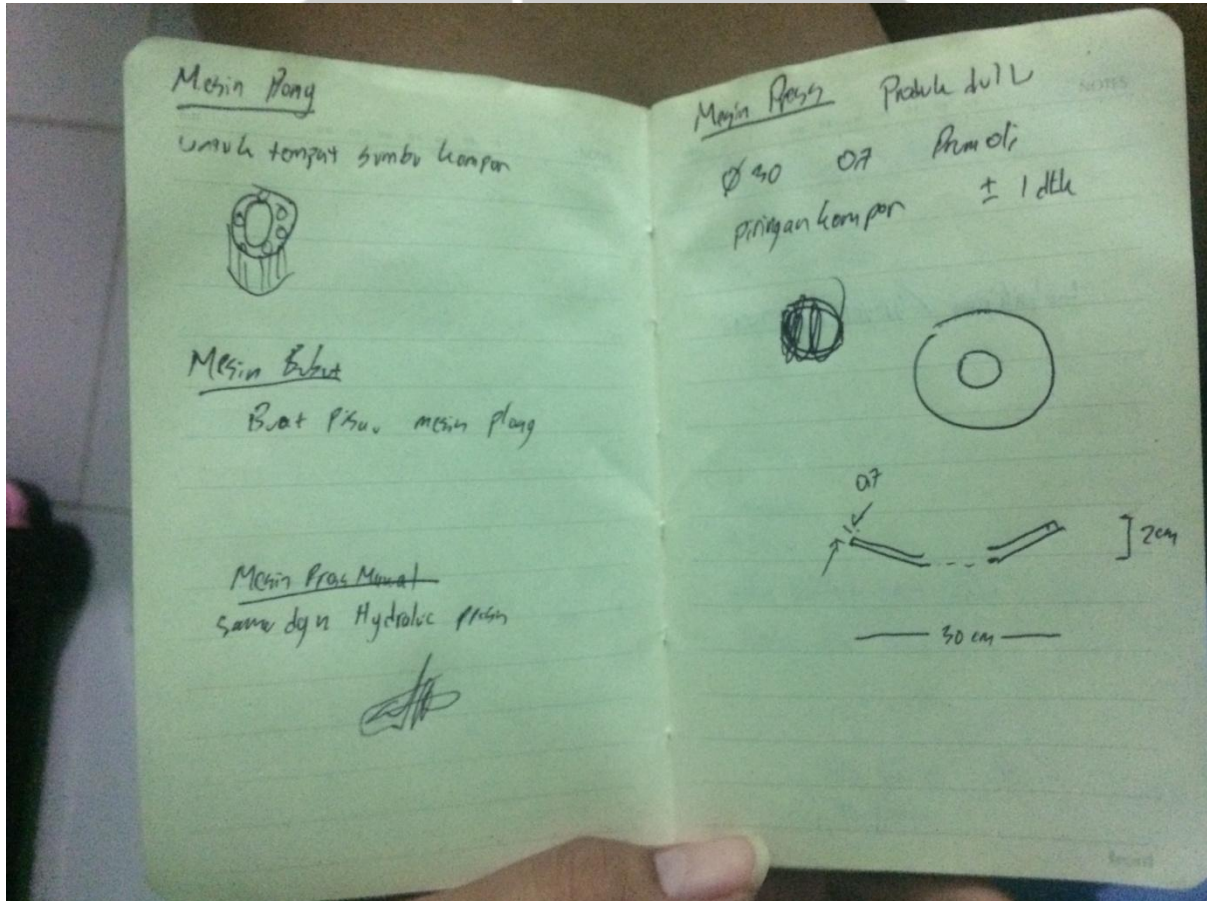 Mesin Plong
untuk tempat sumbu kompor
Mesin Bubut
Buat Pisau mesin plong
Mesin Pres Manual
sama dgn Hydrolic
Mesin Press Produk
Ø 30 0,7
piringan kompor ± 1 dtk
0,7
2 cm
30 cm
NOTES